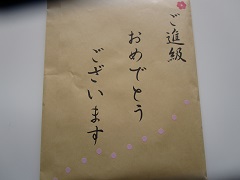 ご進級
おめでとう
ございます